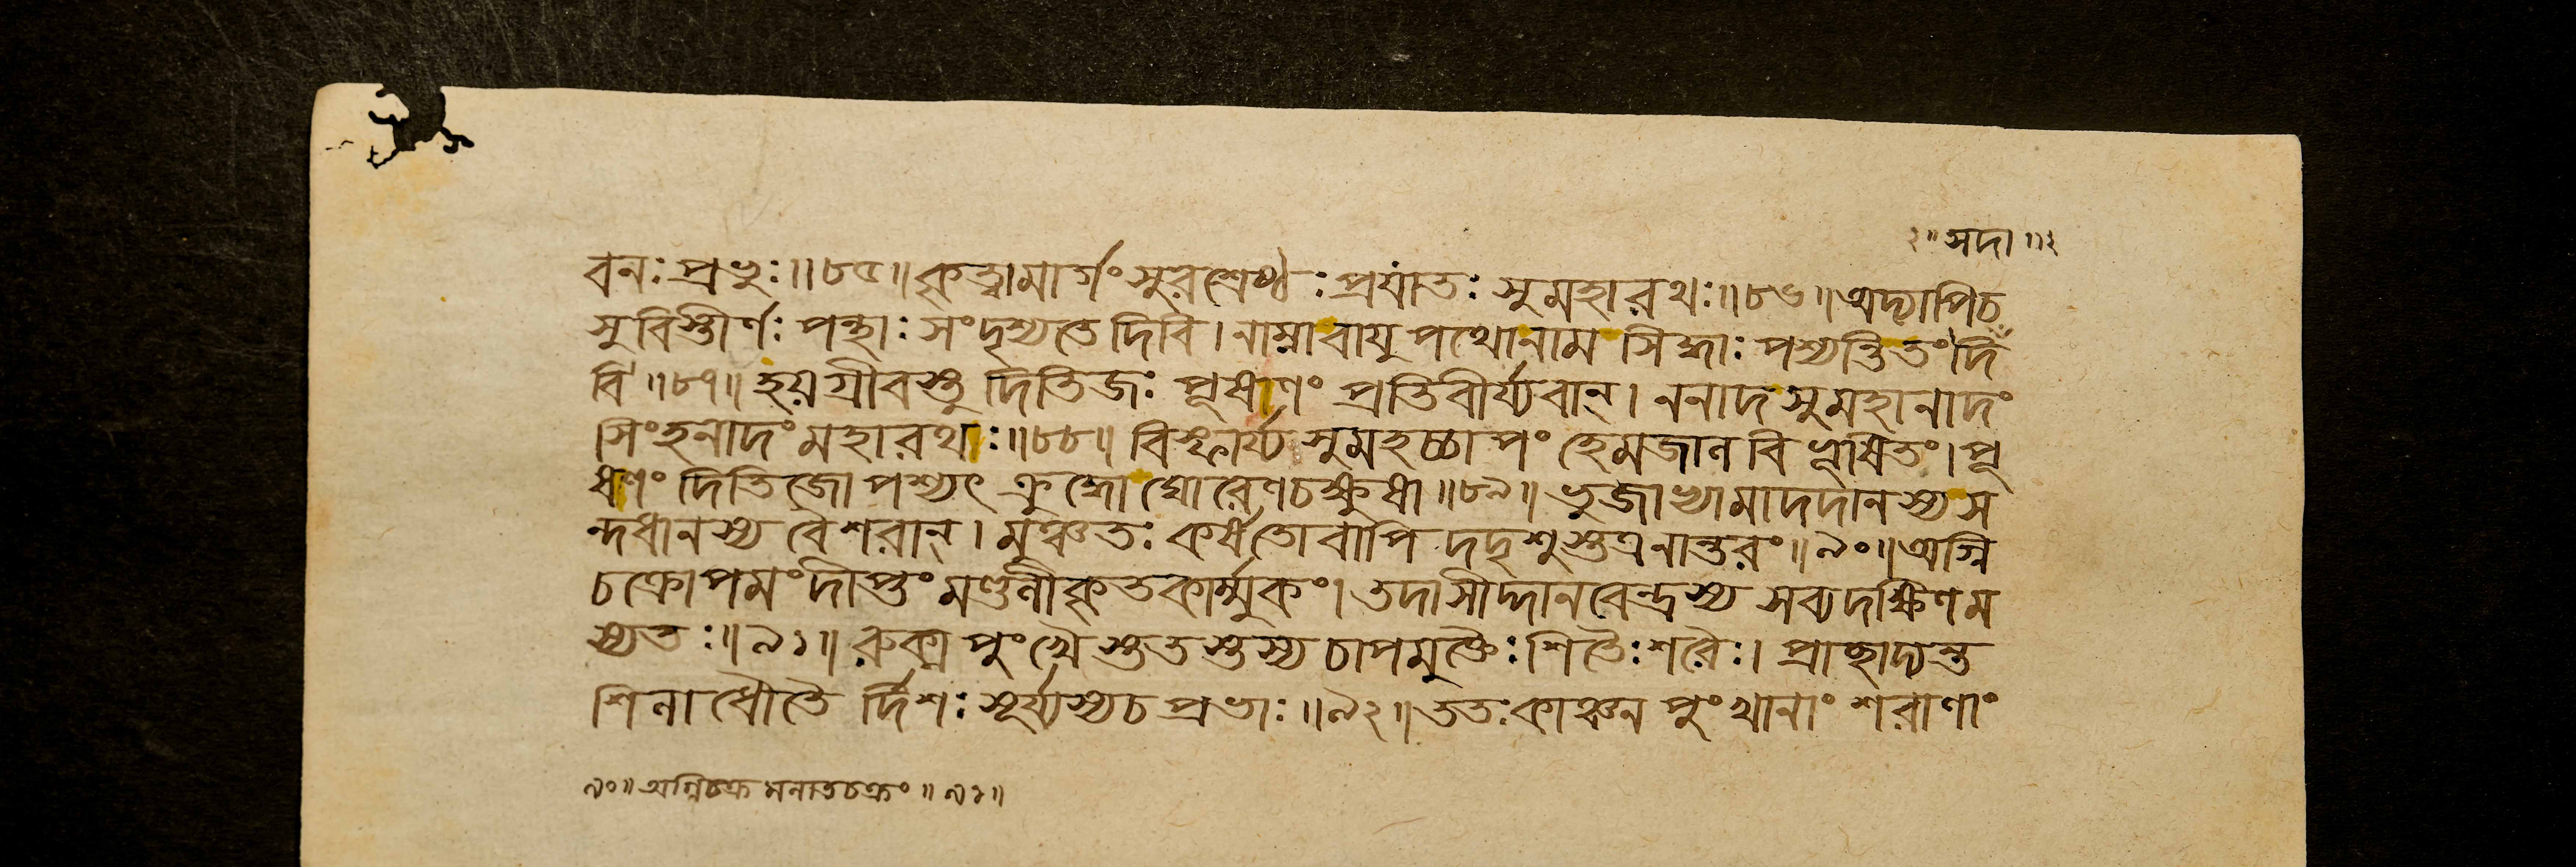 ২॥ সদা ॥২
বনঃ প্রভুঃ॥৮৫॥ কৃত্বামার্গং সুরশ্রেষ্ঠঃ প্রযাতঃ সুমহারথঃ॥৮৬॥ অদ্যাপিচ
সুবিস্তীর্ণঃ পন্থাঃ সংদৃশ্যতে দিবি। নাম্নাবাযুপথোনাম সিদ্ধাঃ পশ্যন্তিতং দি
বি॥৮৭॥ হয়গ্রীবস্তু দিতিজঃ পূষাণং প্রতিবীর্য্যবান্। ননাদ সুমহানাদং
সিংহনাদং মহারথাঃ॥৮৮॥ বিস্ফার্য্য সুমহচ্চাপং হেমজালবিভূষিতং। পূ
ষাণং দিতিজোপশ্যৎ ক্রুদ্ধোঘোরেণচক্ষুষা॥৮৯॥ ভুজাভ্যামাদদানস্যস
ন্দধানস্য বৈশরান্। মুঞ্চতঃ কর্ষতোবাপি দদৃশুস্তত্রনান্তরং॥৯০॥ অগ্নি
চক্রোপমংদীপ্তং মণ্ডলীকৃতকার্ম্মুকং। তদাসীদ্দানবেন্দ্রস্য সব্যদক্ষিণম
স্যতঃ॥৯১॥ রুক্মপুংখৈস্ততস্তস্য চাপমুক্তৈঃ শিতৈঃশরৈঃ। প্রাচ্ছাদ্যন্ত
শিলাধৌতৈ র্দিশঃ সূর্য্যস্যচ প্রভাঃ॥৯২॥ ততঃকাঞ্চন পুংখানাং শরাণাং
৯০॥ অগ্নিচক্রমলাতচক্রং॥৯১॥